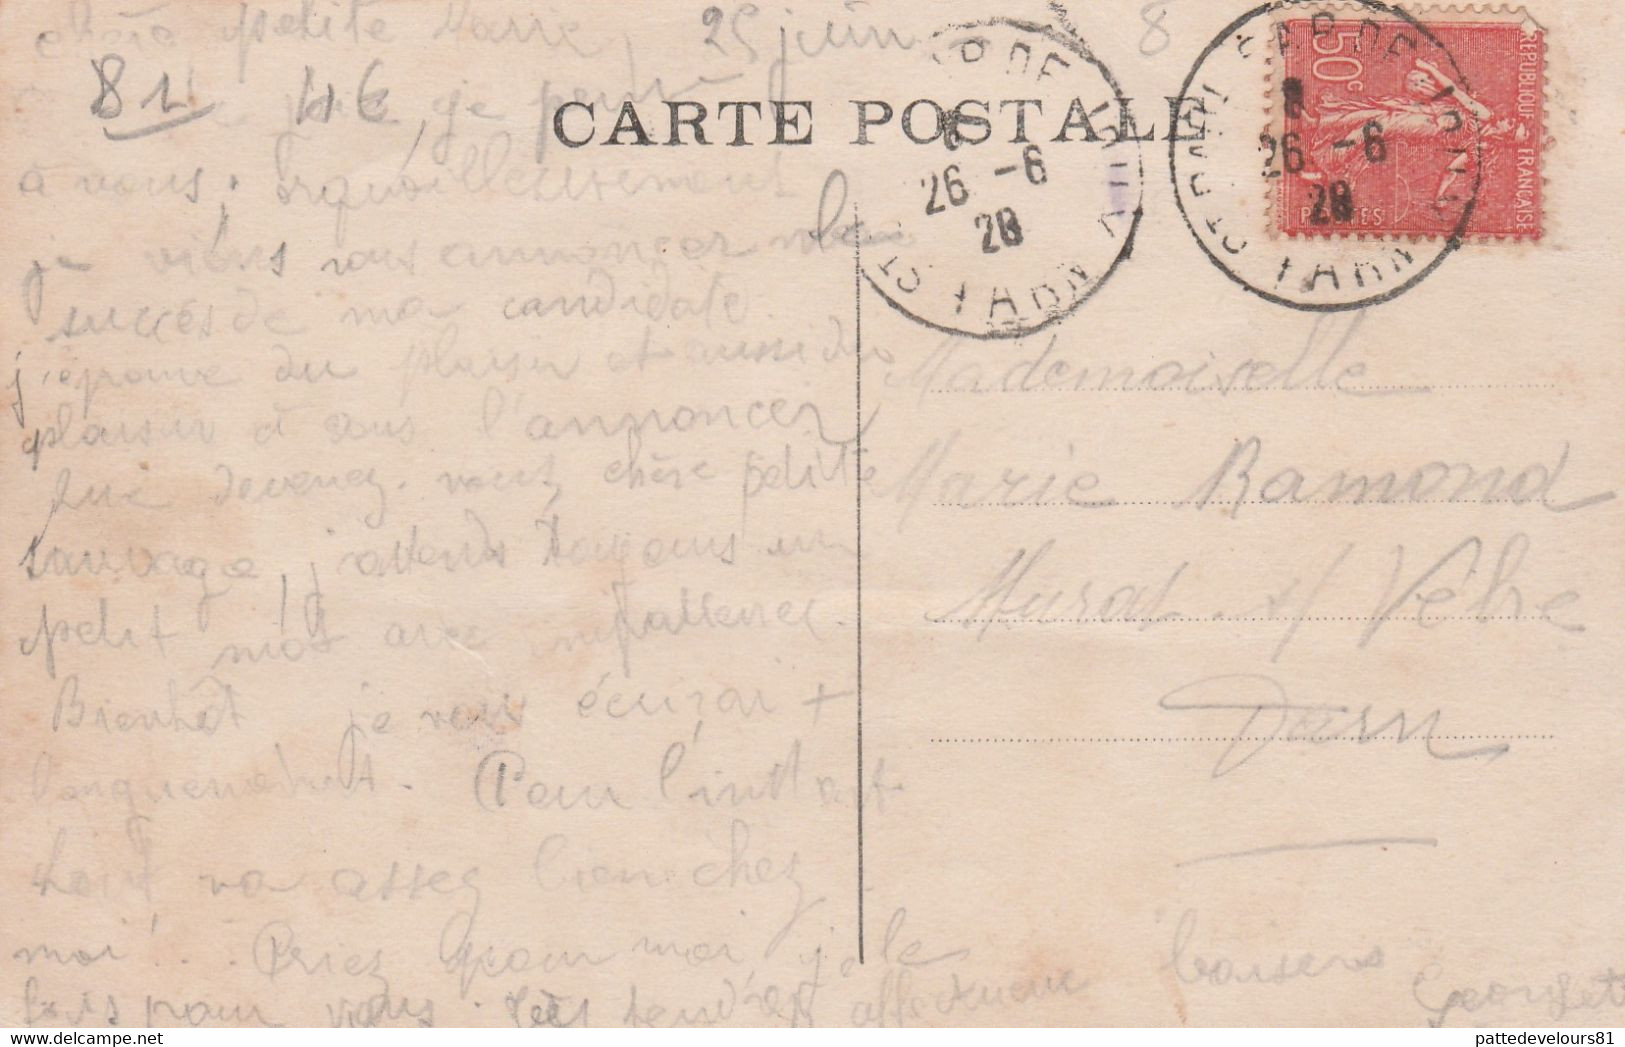 chère petite Marie, 25 juin 8
81 4€ je pense
CARTE POSTALE
à vous; orgueilleusement
je viens vous annoncer le
succès de ma candidate.
j'éprouve du plaisir et aussi du
plaisir à vous l'annoncer
Que devenez-vous, chère petite
sauvage, j'attends toujours un
petit mot avec impatience.
Bientôt je vous écrirai +
longuement. Pour l'instant
tout va assez bien chez
moi. Priez pour moi, je le
fais pour vous. Très tendres affectueux baisers
Georgette
8
26 -6
28
TARN
8
26 -6
28
TARN
50c
REPUBLIQUE FRANÇAISE
POSTES
Mademoiselle
Marie Ramond
Murat s/ Vèbre
Tarn
pattedevelours81